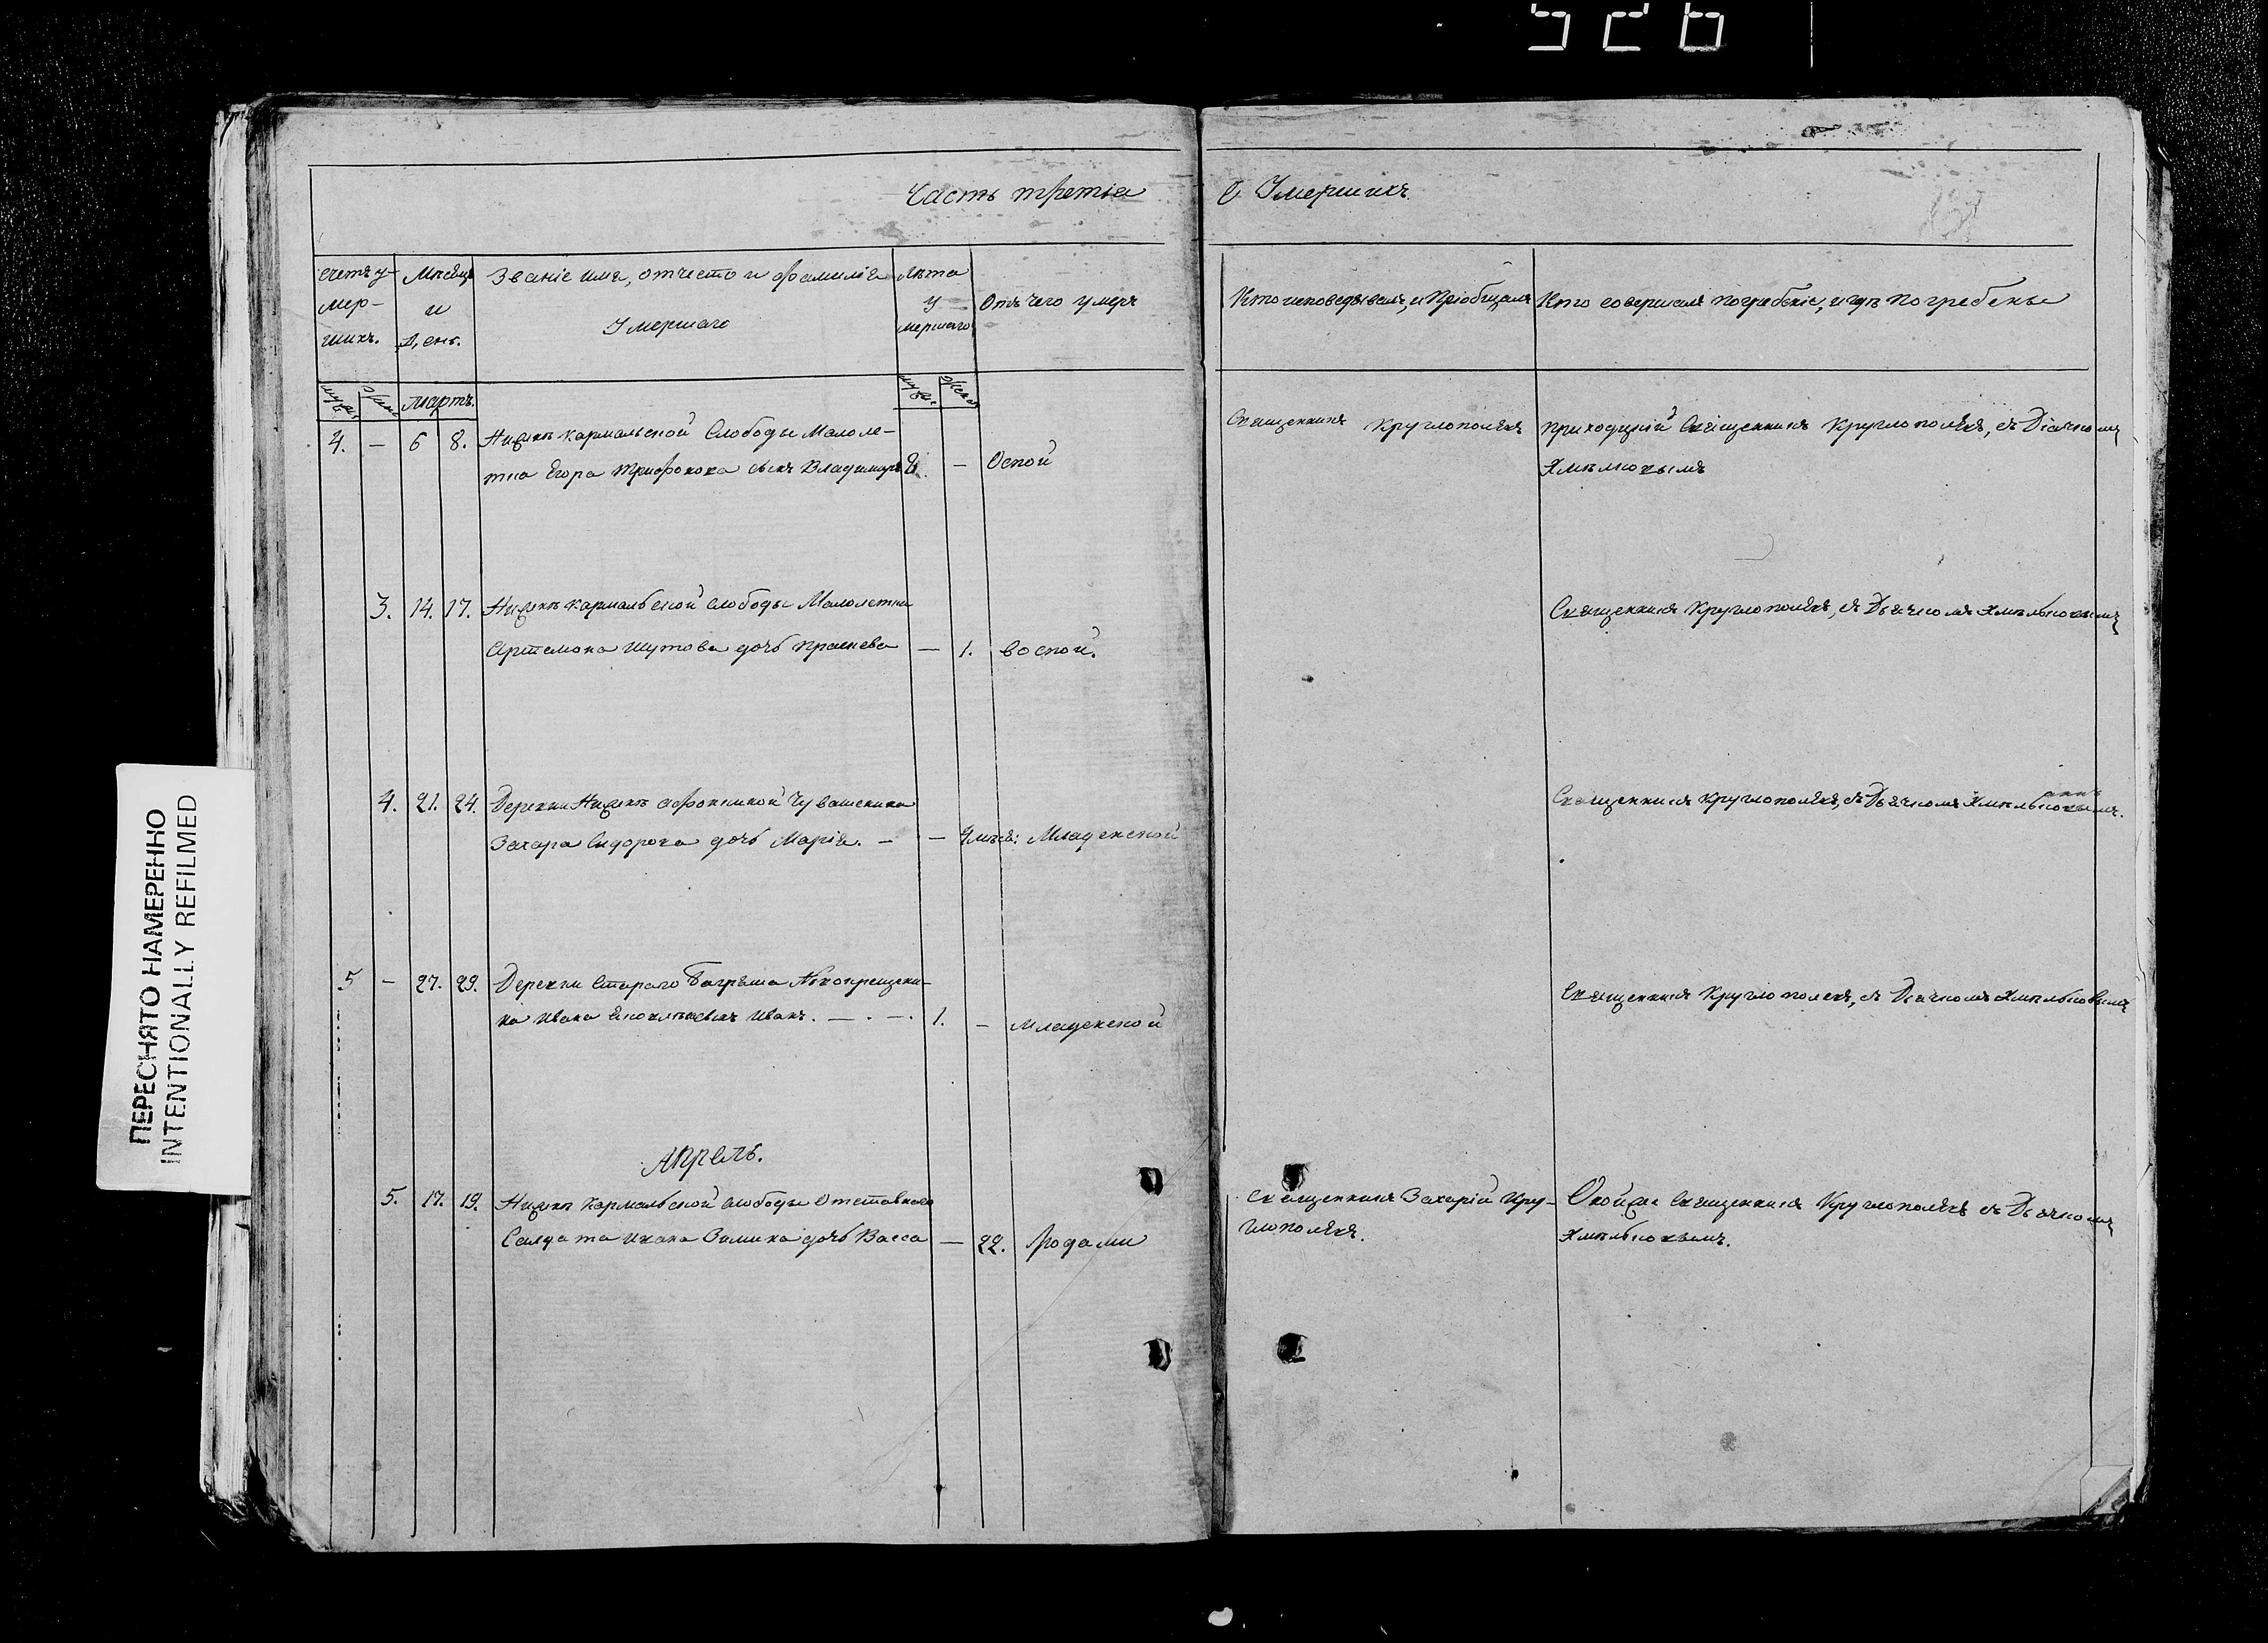 526
Часть третья О Умершихъ
Счетъ у-
мер-
шихъ.
Мѣсяцъ
и
День.
Званіе имя, отчество и фамилія
Умершаго
Лѣта
у
мершаго
Отъ чего умеръ
Кто исповедывалъ, и Пріобщалъ
Кто совершалъ погребеніе, и гдѣ погребены
муж. Жен. Мартъ. муж. Жен.
4. — 6 8. Нижнѣ кармальской Слободы Малоле-
тна Егора Трифонова сынъ Владимиръ 2. — Оспой
Священникъ Круглополевъ
приходцкій Священникъ Круглополевъ, съ Діачкомъ
Хмѣлювымъ
3. 14. 17. Нижнѣ кармальской слободы Малолетна
Артемона Шутова дочь Прасковa — 1. воспой.
Священникъ Круглополевъ, съ Дьячкомъ Хмѣльновымъ
4. 21. 24. Деревни Нижнѣ афонькиной Чувашенина
Захара Сидорова дочь Марія. — — 4 мѣся: Младенской
Священникъ Круглополевъ, съ Дьячкомъ
5 — 27. 29. Деревни Стараго Багряша Новокрещени-
на Ивана сынъ Иванъ. — . — . 1. — младенской
Священникъ Круглополевъ, съ Дьячкомъ Хмѣльновымъ
Апрель.
5. 17. 19. Нижнѣ Кармальской слободы Отставнаго
Салдата Ивана Зимина дочь Васса — 22. Родами
Священникъ Захарій Кру-
глополевъ.
Онойже Священникъ Круглополевъ съ Дьячкомъ
Хмѣльновымъ.
ПЕРЕСНЯТО НАМЕРЕННО
INTENTIONALLY REFILMED